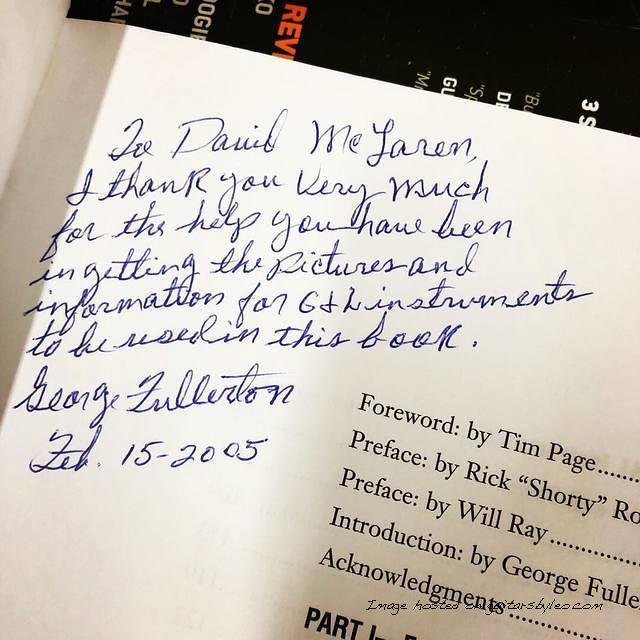 To David McLaren,
I thank you very much
for the help you have been
in getting the pictures and
information for G&L instruments
to be used in this book.
George Fullerton
Feb. 15-2005
Foreword: by Tim Page......
Preface: by Rick "Shorty" Ro
Preface: by Will Ray..............
Introduction: by George Fulle
Acknowledgments
PART I–
REVI
3 S
Image hosted on guitarsbyleo.com